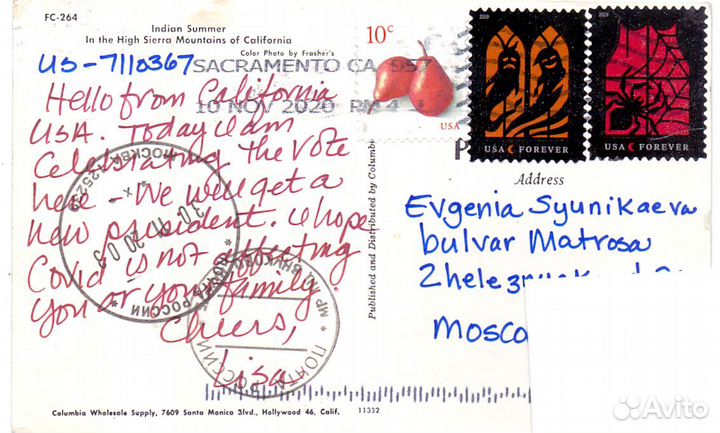 FC-264
Indian Summer
In the High Sierra Mountains of California
Color Photo by Frasher's
US-7110367
SACRAMENTO CA 957
10 NOV 2020 PM 4 L
Hello from California
USA. Today I am
celebrating the vote
here - We will get a
new president. I hope
Covid is not affecting
you or your family.
Cheers,
Lisa
10c
USA
2019
USA FOREVER
2019
USA FOREVER
Published and Distributed by Columbi
Address
Evgenia Syunikaeva
bulvar Matrosa
Zhelezn
Mosco
МОСКВА 125239
30 11 20 09
ПОЧТА РОССИИ
МРП ВНУКОВО
ПОЧТА РОССИИ
Columbia Wholesale Supply, 7609 Santa Monica Blvd., Hollywood 46, Calif.
11332
Avito